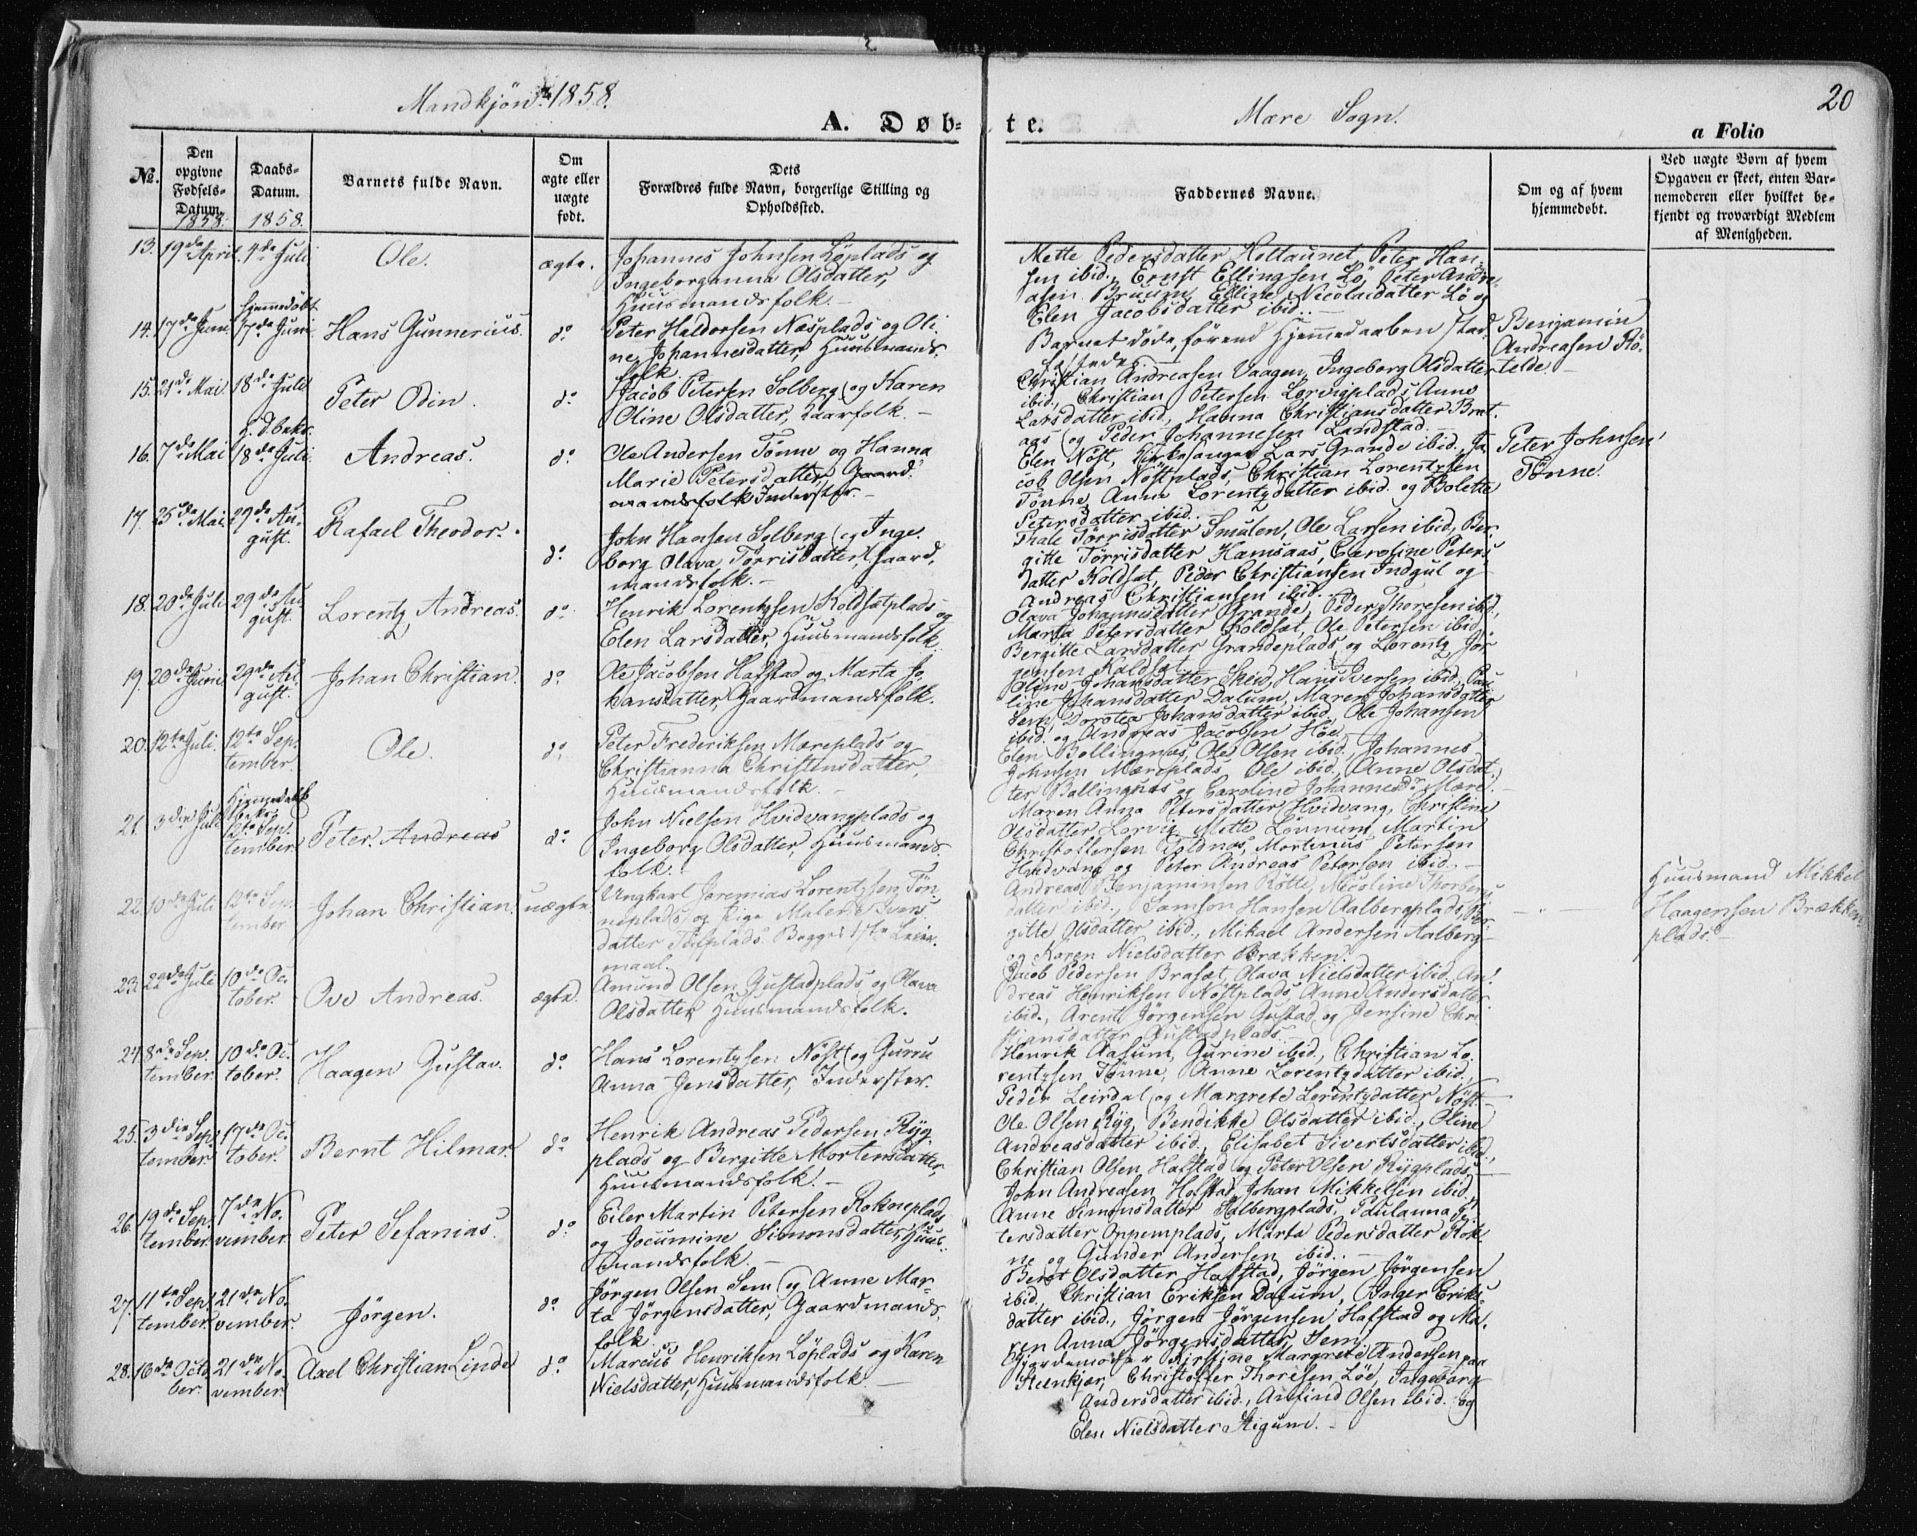 Mandkjøn 1858.
Mære Sogn.
20
A. Døb-
te.
a Folio
No.
Den opgivne Fødsels-Datum.
1858.
Daabs-Datum.
1858.
Barnets fulde Navn.
Om ægte eller uægte født.
Dets
Forældres fulde Navn, borgerlige Stilling og
Opholdssted.
Faddernes Navne.
Om og af hvem
hjemmedøbt.
Ved uægte Børn af hvem
Opgaven er skeet, enten Bar-
nemoderen eller hvilket be-
kjendt og troværdigt Medlem
af Menigheden.
13. 19de April. 4de Juli Ole. ægte.
Johannes Johnsen Löplads og
Ingeborganna Olsdatter,
Huusmandsfolk.
Mette Pedersdatter Hettaunet, Peter Han-
sen ibid., Ernst Ellingsen Lö, Peter Andre-
asen Bruum, Elline Nicolaidatter Lö og
Elen Jacobsdatter ibid.
14. 17de Juni. Hjemmedöbt 17de Juni Hans Gunnerius. do
Peter Haldorsen Næsplads og Oli-
ne Johannesdatter, Huusmands-
folk.
Barnet döde, förend Hjemmedaaben stad-
fæstedes.
Benjamin
Andreasen Rö-
telde.
15. 21de Mai 18de Juli Peter Odin. do
Jacob Petersen Solberg og Karen
Oline Olsdatter, Kaarfolk.
Christian Andreasen Vaagen, Ingeborg Olsdatter
ibid., Christian Petersen Lorvigplads, Anne
Larsdatter ibid., Hanna Christiansdatter Brat-
aas og Peder Johannesen Landstad.
16. 7de Mai 18de Juli. Andreas. do
Ole Andersen Tönne og Hanna
Marie Petersdatter, Gaard-
mandsfolk Inderster.
Elen Nöst, Kirkesanger Lars Grande ibid., Ja-
cob Olsen Nöstplads, Christian Lorentzsen
Tönne, Anne Lorentzdatter ibid. og Bolette
Petersdatter ibid.
Peter Johnsen
Tönne.
17. 25de Mai. 29de Au-
gust. Rafael Theodor. do
John Hansen Solberg og Inge-
borg Olava Törrisdatter, Gaard-
mandsfolk.
Thale Törrisdatter Smulen, Ole Larsen ibid., Ber-
gitte Törrisdatter Hamsaas, Caroline Peters-
datter Koldsæt, Peder Christiansen Indgul og
Andreas Christiansen ibid.
18. 20de Juli 29de Au-
gust. Lorentz Andreas. do
Henrik Lorentzsen Koldsætplads og
Elen Larsdatter, Huusmandsfolk
Olava Johannesdatter Grande, Peder Thoresen ibid.,
Marta Petersdatter Koldsæt, Ole Petersen ibid.,
Bergitte Larsdatter Grandeplads og Lorentz Jör-
gensen Koldsæt.
19. 20de Juni. 29de Au-
gust. Johan Christian. do
Ole Jacobsen Hafstad og Marta Jo-
hansdatter, Gaardmandsfolk.
Oline Johansdatter Skeid, Hans Iversen ibid., Pau-
line Johansdatter Dalum, Maren Johansdatter
Sem, Dorotea Johansdatter ibid., Ole Johansen
ibid. og Andreas Jacobsen Höe.
20. 12te Juli. 12te Sep-
tember. Ole. do
Peter Frederiksen Mæreplads og
Christianna Christensdatter,
Huusmandsfolk.
Elen Bollingnæs, Ole Olsen ibid., Johannes
Johnsen Mæreplads, Ole ibid., Anne Olsdat-
ter Ballingnæs og Caroline Johannesdr Mære.
21. 3die Juli Hjemmedaab
12te Sep-
tember. Peter Andreas do
John Nielsen Hvidvangplads og
Ingeborg Olsdatter, Huusmands-
folk.
Maren Anna Petersdatter Hvidvang, Christine
Olsdatter Lorvig, Mette Lönnum, Martin
Christoffersen Toldnæs, Mortinus Petersen
Hvidvang og Peter Andreas Petersen ibid.
22. 10de Juli 12te Sep-
tember Johan Christian. uægte.
Ungkarl Jeremias Lorentzsen Tön-
neplads og Pige
datter
maal.
Andreas Benjaminsen Rötte, Nicoline Thorbens-
datter ibid., Samson Hansen Aalbergplads, Ber-
gitte Olsdatter ibid., Mikael Andersen Aalberg
og Karen Nielsdatter Brækken.
Huusmand Mikkel
Haagensen Brækken-
plads.
23. 22de Juli 10de Oc-
tober. Ove Andreas. ægte.
Amund Olsen Gustadplads og Olava
Olsdatter, Huusmandsfolk.
Jacob Pedersen Brasæt, Olava Nielsdatter ibid., An-
dreas Henriksen Nöstplads, Anne Andersdatter
ibid., Arent Jörgensen Gustad og Jensine Chri-
stiansdatter Gustadplads.
24. 8de Sep-
tember. 10de Oc-
tober. Haagen Gustav. do
Hans Lorentzsen Nöst og Gurru
Anna Jensdatter, Inderster.
Henrik Aasum, Gurine ibid., Christian Lo-
rentzsen Tönne, Anne Lorentzdatter ibid.,
Peder Leirdal og Margrete Lorentzdatter Nöst.
25. 3die Sep-
tember. 17de Oc-
tober. Bernt Hilmar do
Henrik Andreas Pedersen Ryg-
plads og Bergitte Mortensdatter,
Huusmandsfolk.
Ole Olsen Ryg, Bendikke Olsdatter ibid., Oline
Andreasdatter ibid., Elisabet Sivertsdatter ibid.,
Christian Olsen Hafstad og Peter Olsen Rygplads.
26. 19de Sep-
tember. 7de No-
vember Peter Sefanias. do
Eiler Martin Petersen Rokneplads
og Jocumine Simonsdatter, Huus-
mandsfolk.
John Andreasen Hofstad, Johan Mikkelsen ibid.,
Anne Simonsdatter Halbergplads, Paulanna Pe-
tersdatter Oppemplads, Marta Pedersdatter Rok-
ne og Gunder Andersen ibid.
27. 11te Sep-
tember. 21de No-
vember. Jörgen. do
Jörgen Olsen Sem og Anne Mar-
ta Jörgensdatter, Gaardmands-
folk.
Beret Olsdatter Hafstad, Jörgen Jörgensen
ibid., Christian Eriksen Dalum, Inger Eriks-
datter ibid., Jörgen Jörgensen Hafstad og Ma-
ren Anna Jörgensdatter Sem.
28. 16de Octo-
ber. 21de No-
vember Axel Christian Linde do
Marcus Henriksen Löplads og Karen
Nielsdatter, Huusmandsfolk
Gjordemoder Kirstine Margrete Andersen paa
Steenkjær, Christoffer Thoresen Löe, Ingeborg
Andersdatter ibid., Anfind Olsen ibid. og
Elen Nielsdatter Stigum.